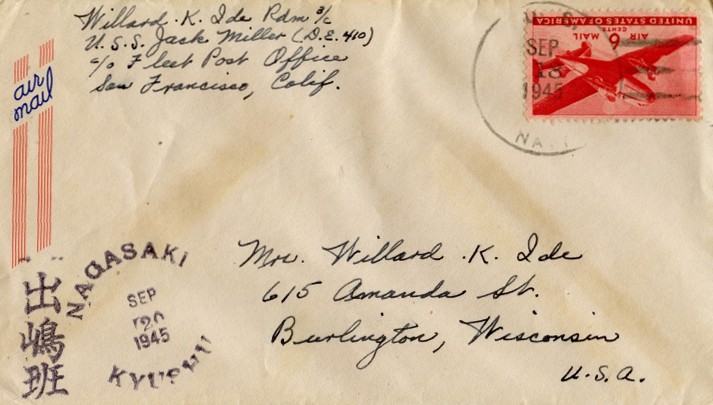 Willard .K. Ide Rdm 3/c
U.S.S. Jack Miller (D.E. 410)
c/o Fleet Post Office
San Francisco, Calif.
air
mail
UNITED STATES OF AMERICA
AIR MAIL
6 CENTS
SEP
13
1945
NAVY
Mrs. Willard .K. Ide
615 Amanda St.
Burlington, Wisconsin
U.S.A.
NAGASAKI
SEP
20
1945
KYUSHU
出嶋班